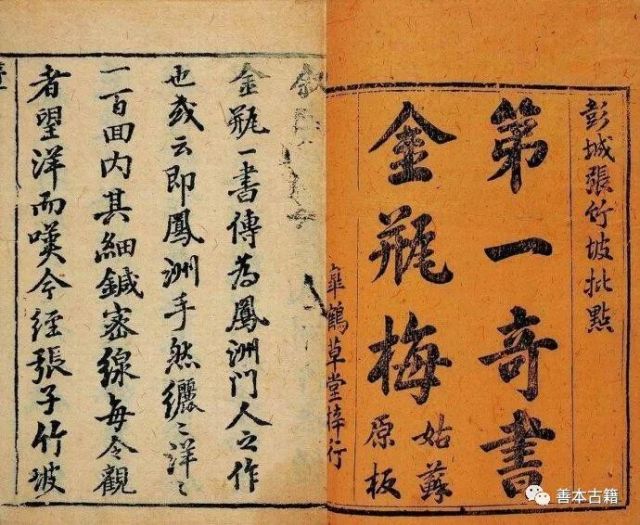 彭城張竹坡批點
第一奇書
金瓶梅
姑蘇
原板
皐鶴草堂梓行
金瓶一書傳為鳳洲門人之作
也或云即鳳洲手然纚〻洋〻
一百回内其細鍼密線每令觀
者望洋而嘆今經張子竹坡
善本古籍